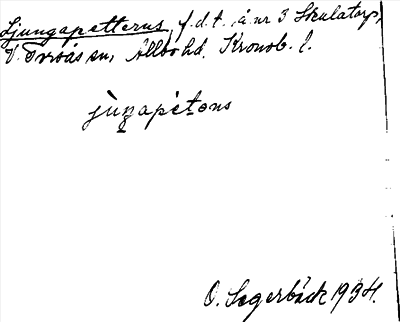 Ljungapetterus, f.d.t. å nr 3 Skulatorp,
V. Torsås sn, Allbo hd. Kronob. l.
jùŋapètəns
O. Segerbäck 1934.